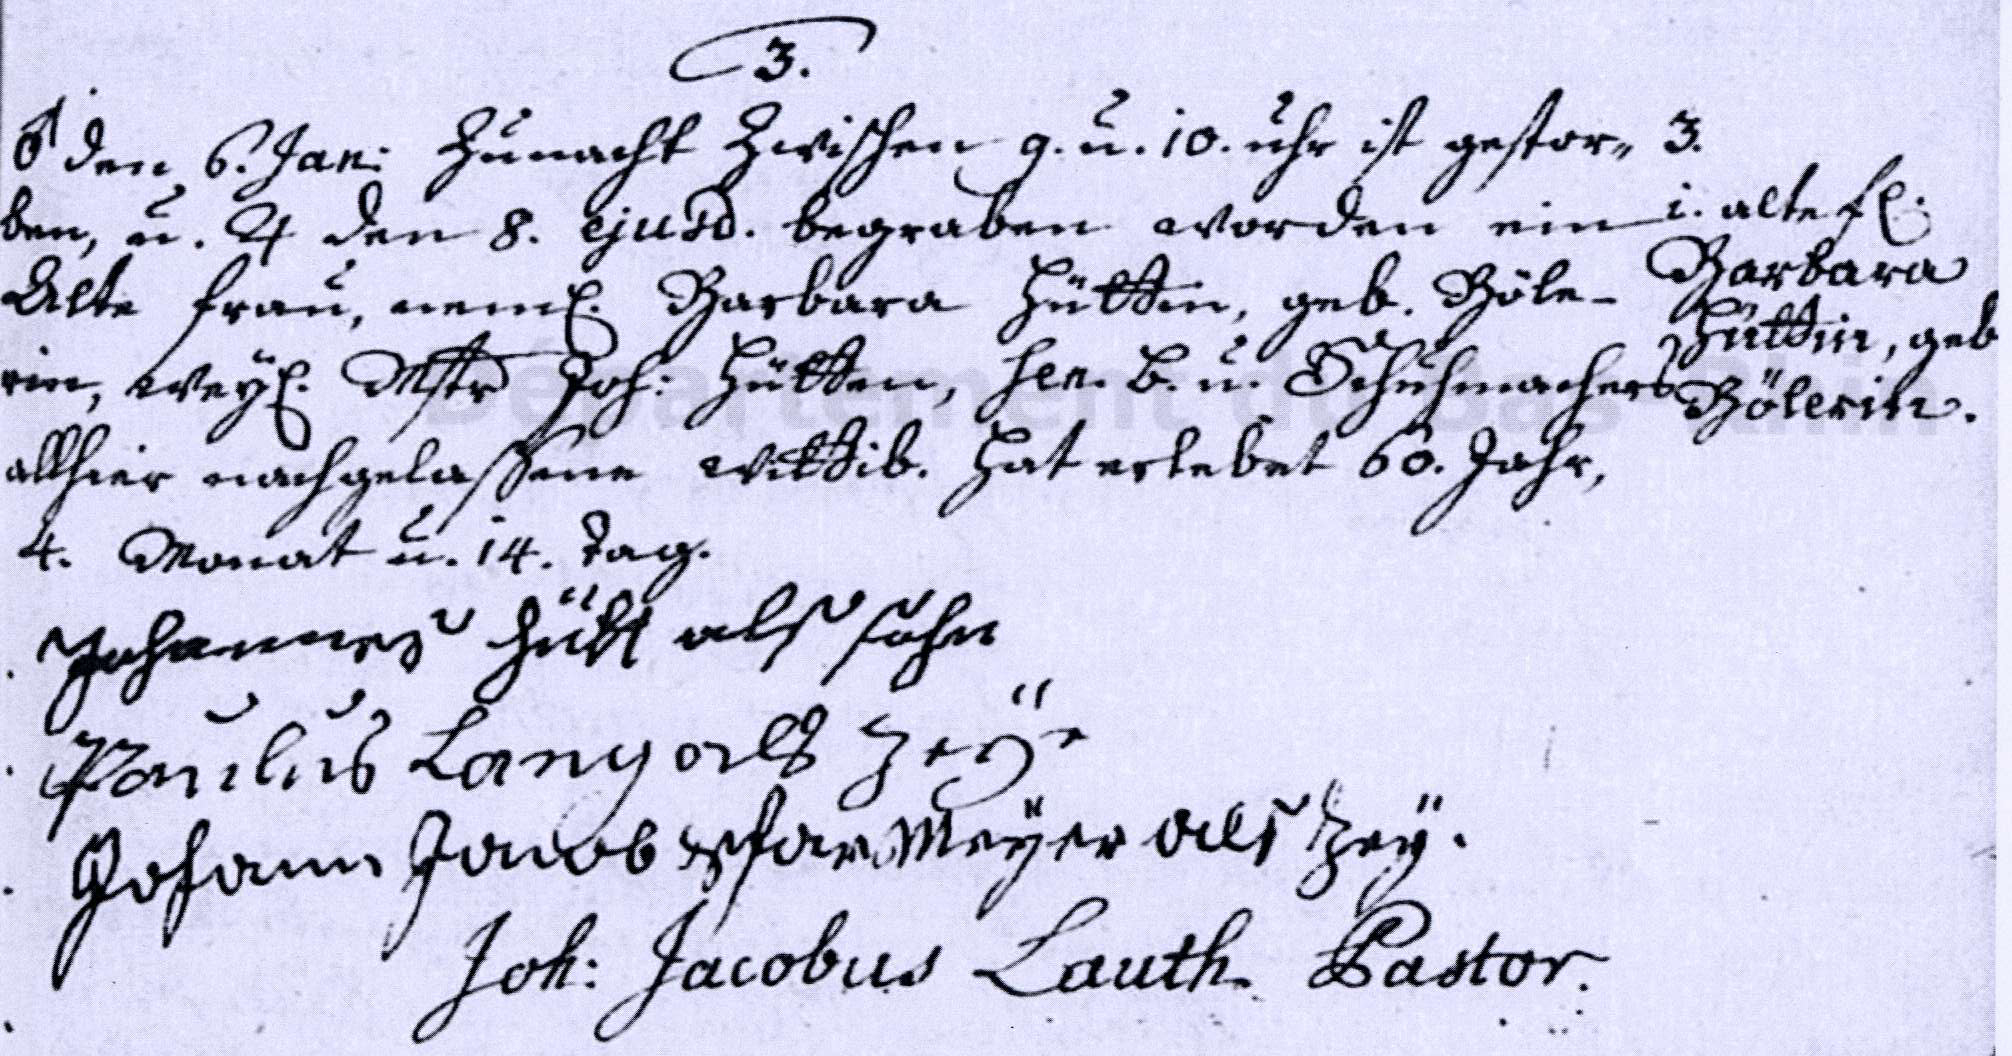 3.
♂ den 6. Jan: Zunacht Zwischen 9. u. 10. uhr ist gestor„
ben, u. ♃ den 8. ejusd. begraben worden ein
Alte frau, neml. Barbara Hüttin, geb. Böle-
rin, weyl. Mstr Joh: Hütten, gew. B. u. Schuhmachers
allhier nachgelassene wittib. Hat erlebet 60. Jahr,
4. Monat u. 14. tag.
3.
1. alte fr.
Barbara
Hüttin, geb
Bölerin.
Johannes Hütt als sohn
Paulus Lang als Zeÿe
Johann Jacob Meÿer als Zeÿ.
Joh: Jacobus Lauth. Pastor.
Département du Bas Rhin